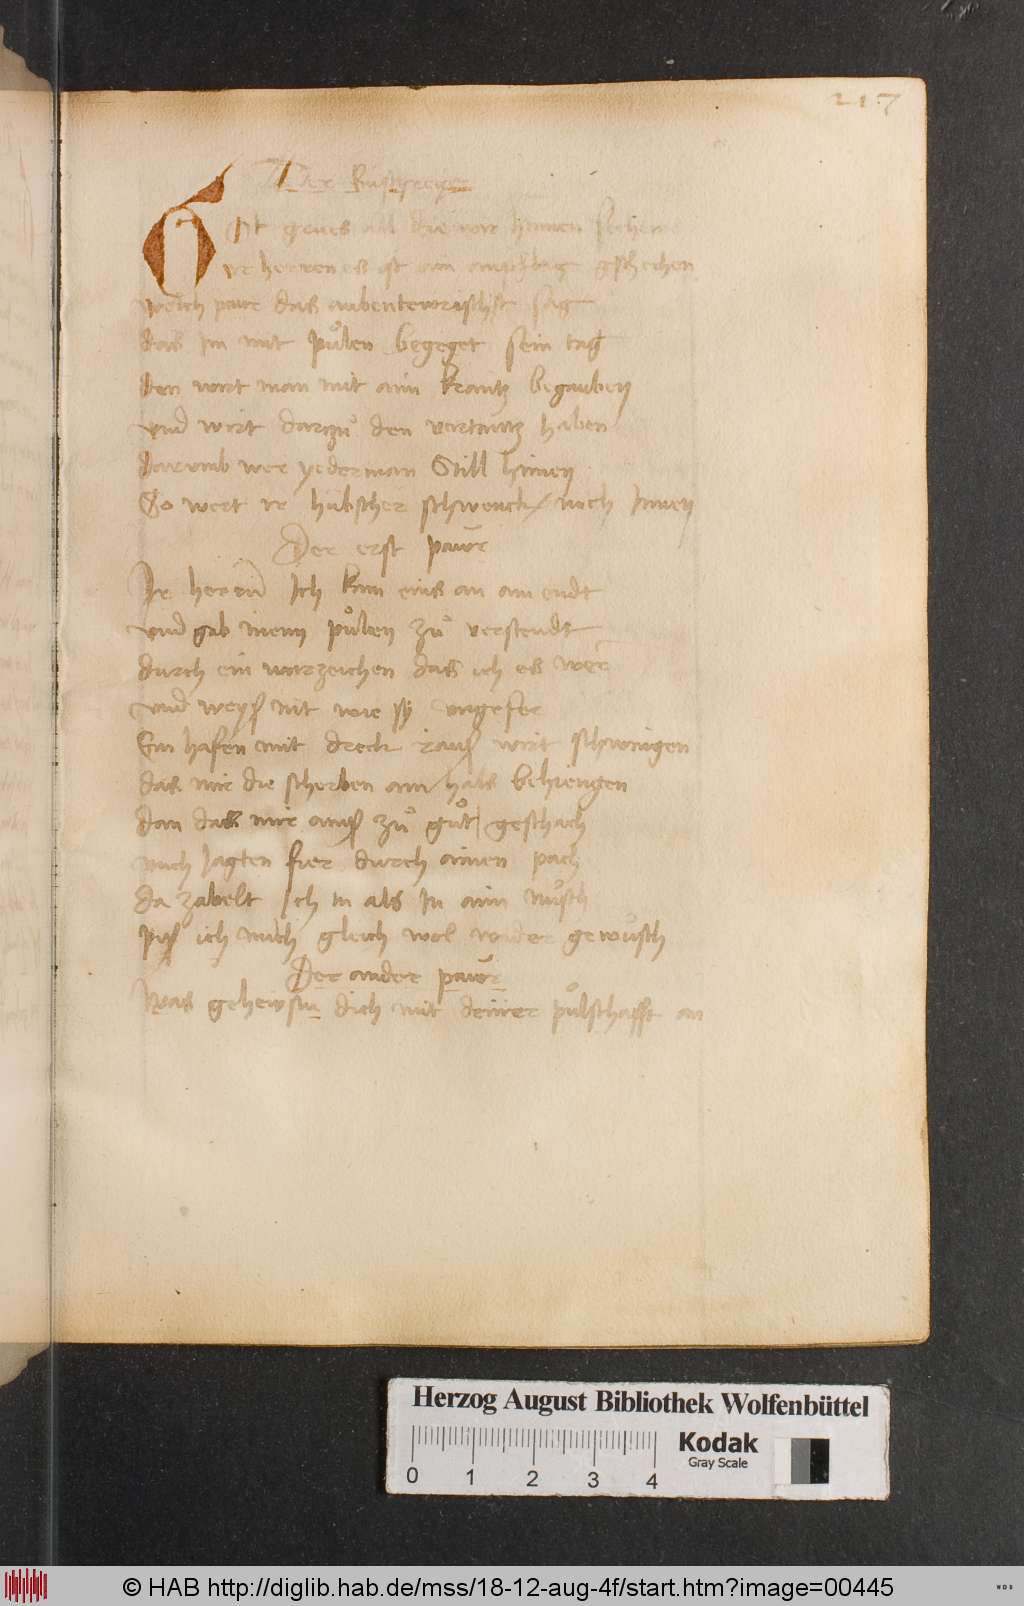 217
Der
Got geues all die wir hinnen sechen
Ir herren es ist am
welch paur das aubentewrischst sag
das Im mit půlen begeget sein tag
den wirt man mit aim krantz begauben
vnd wirt darzů den vortantz haben
darumb wer yederman Still hinnen
So wert ir hubscher schwenck noch Innen
Der erst pawr
Ir herrn Ich kam eins an am endt
vnd gab mein půlen zů verstendt
durch ein warzeichen das ich es wer
vnd weyß nit wie sy vngefer
Ein hafen mit dreck rauß wirt schwingen
das mir die scherben am hals behiengen
dan das mir auß zů gůt geschach
mich Jagten fier durch ainen pach
da zabelt Ich In als In aim
piß ich mich gleich wol wider gewusch
Der ander pawr
Was dich mit deiner půlschafft an
Herzog August Bibliothek Wolfenbüttel
0 1 2 3 4
Kodak
Gray Scale
© HAB http://diglib.hab.de/mss/18-12-aug-4f/start.htm?image=00445